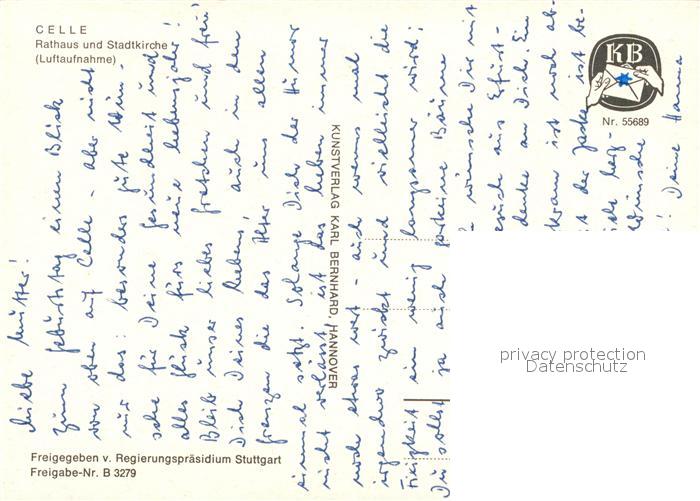 CELLE
Rathaus und Stadtkirche
(Luftaufnahme)
KB
Nr. 55689
Liebe Mutter!
Zum Geburtstag einen Blick
von oben auf Celle - aber nicht
nur das: besonders gute Wün-
sche für Deine Gesundheit und
alles Glück fürs neue Lebensjahr!
Bleib unser liebes Gretchen und freu'
Dich Deines Lebens! auch in den
Grenzen die das Alter uns allen
einmal setzt. Solange Dich der Humor
nicht verlässt, ist das Leben immer
noch etwas wert - auch wenns mal
irgendwo zwickt und vielleicht die
Fixigkeit ein wenig langsamer wird;
Du sollst ja auch gar keine Bäume
wünsche Dir mit
besuch aus Erfurt-
denke an Dich. Ein
Kram ist noch ab-
der Jacke ist be-
herz-
Wünsche
! Deine Hanna
KUNSTVERLAG KARL BERNHARD, HANNOVER
privacy protection
Datenschutz
Freigegeben v. Regierungspräsidium Stuttgart
Freigabe-Nr. B 3279